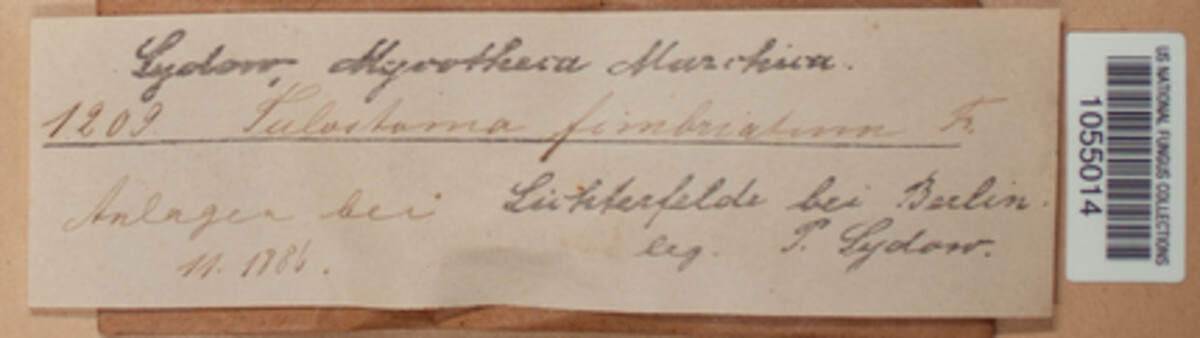 Sydow, Mycotheca Marchica.
1209 Tulostoma fimbriatum Fr.
Anlagen bei Lichterfelde bei Berlin.
11. 1886. leg. P. Sydow.
US NATIONAL FUNGUS COLLECTIONS
1055014